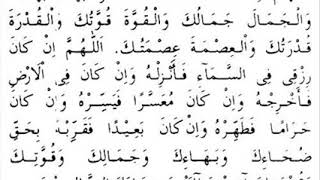 وَالْجَمَالَ جَمَالُكَ وَالْقُوَّةَ قُوَّتُكَ وَالْقُدْرَةَ
قُدْرَتُكَ وَالْعِصْمَةَ عِصْمَتُكَ. اَللّٰهُمَّ اِنْ كَانَ
رِزْقِى فِى السَّمَآءِ فَأَنْزِلْهُ وَاِنْ كَانَ فِى الْاَرْضِ
فَأَخْرِجْهُ وَاِنْ كَانَ مُعَسَّرًا فَيَسِّرْهُ وَاِنْ كَانَ
حَرَامًا فَطَهِّرْهُ وَاِنْ كَانَ بَعِيْدًا فَقَرِّبْهُ بِحَقِّ
ضُحَاءِكَ وَبَهَاءِكَ وَجَمَالِكَ وَقُوَّتِكَ